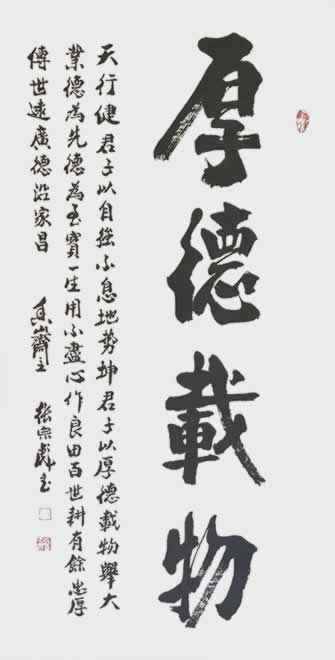 厚德載物
天行健君子以自強不息地勢坤君子以厚德載物舉大
業德為先德為至寶一生用不盡心作良田百世耕有餘忠厚
傳世遠廣德沿家昌 山齋主 張宗彪